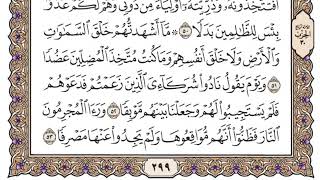 أَفَتَتَّخِذُونَهُۥ وَذُرِّيَّتَهُۥٓ أَوْلِيَآءَ مِن دُونِى وَهُمْ لَكُمْ عَدُوٌّۢ
بِئْسَ لِلظَّٰلِمِينَ بَدَلًا ۝٥٠ مَّآ أَشْهَدتُّهُمْ خَلْقَ ٱلسَّمَٰوَٰتِ
وَٱلْأَرْضِ وَلَا خَلْقَ أَنفُسِهِمْ وَمَا كُنتُ مُتَّخِذَ ٱلْمُضِلِّينَ عَضُدًا
۝٥١ وَيَوْمَ يَقُولُ نَادُوا۟ شُرَكَآءِىَ ٱلَّذِينَ زَعَمْتُمْ فَدَعَوْهُمْ
فَلَمْ يَسْتَجِيبُوا۟ لَهُمْ وَجَعَلْنَا بَيْنَهُم مَّوْبِقًا ۝٥٢ وَرَءَا ٱلْمُجْرِمُونَ
ٱلنَّارَ فَظَنُّوٓا۟ أَنَّهُم مُّوَاقِعُوهَا وَلَمْ يَجِدُوا۟ عَنْهَا مَصْرِفًا ۝٥٣
٢٩٩